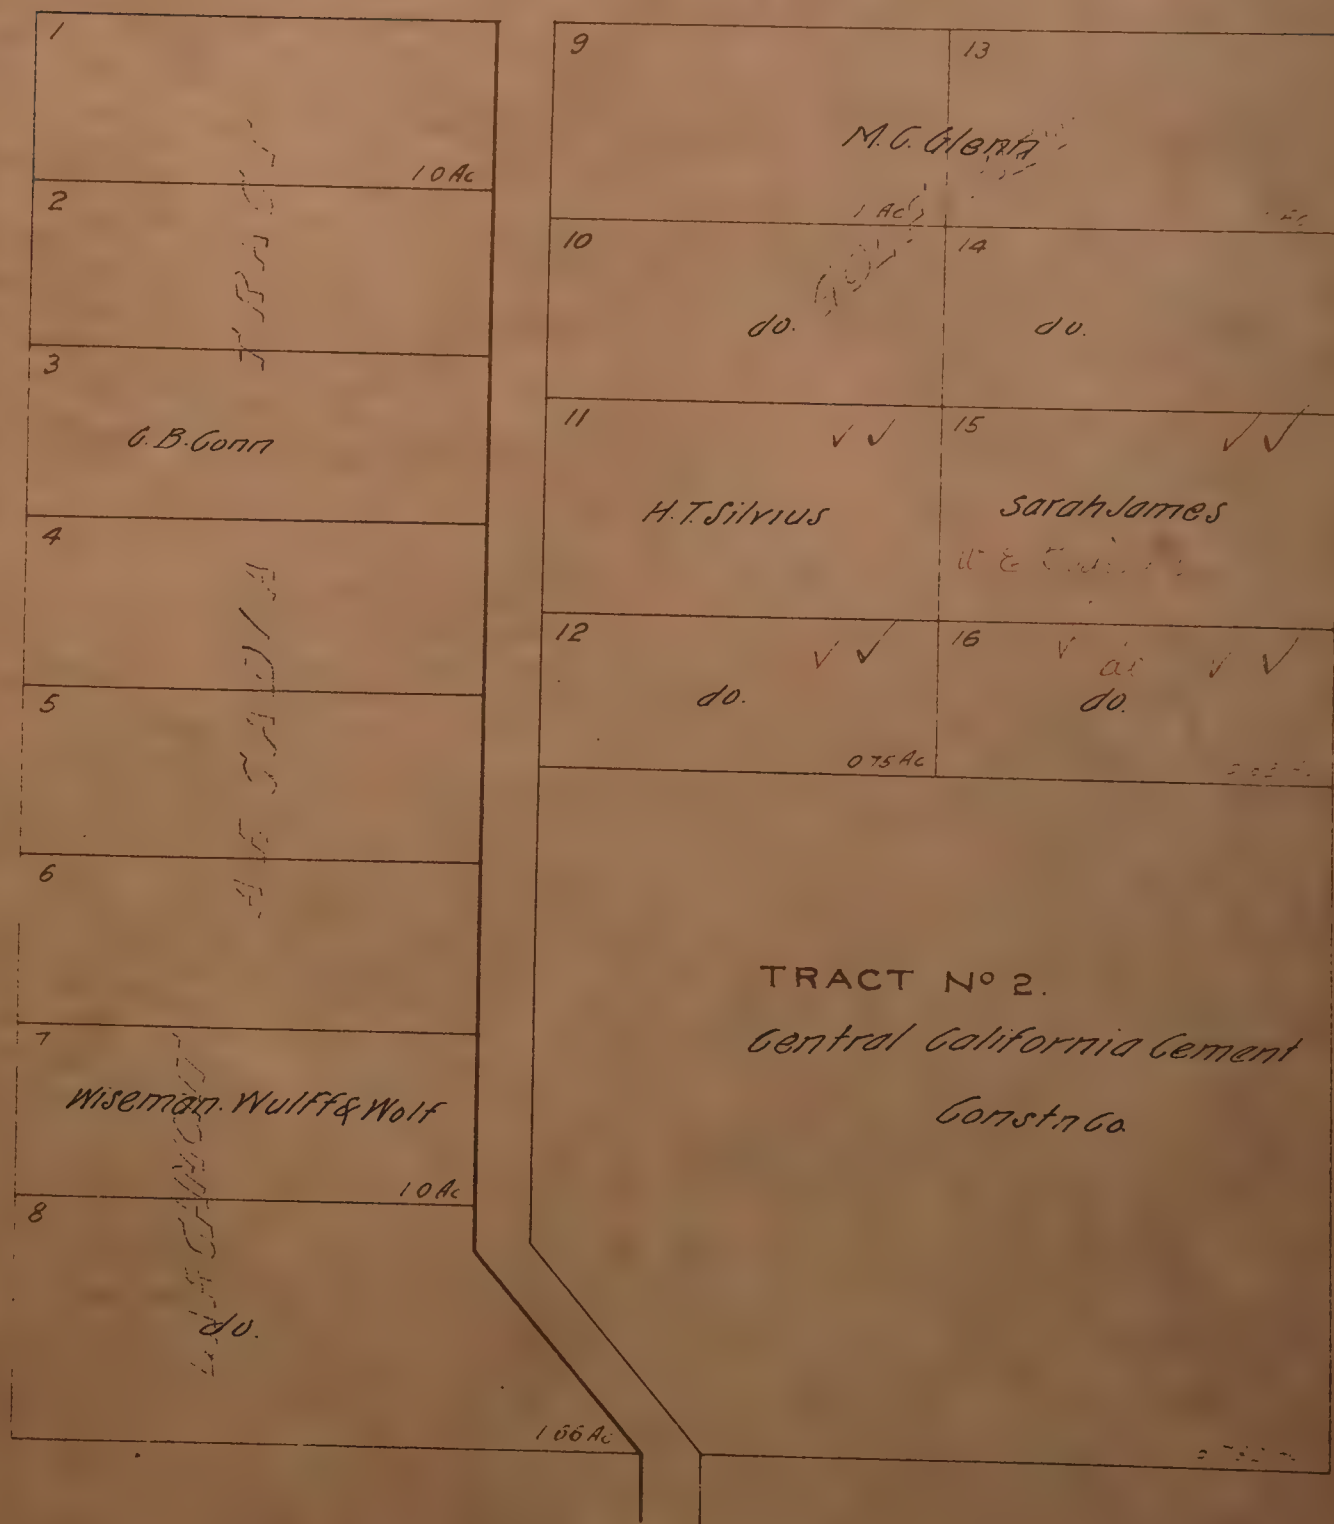 1
1 0 Ac
2
3
C. B. Conn
4
5
6
7
Wiseman. Wulff & Wolf
1 0 Ac
8
do.
1 66 Ac
9
13
M. C. Glenn
1 Ac
10
14
do.
do.
11
15
H. T. Silvius
Sarah James
12
16
do.
do.
0 75 Ac
TRACT Nº 2.
Central California Cement
Constn Co.